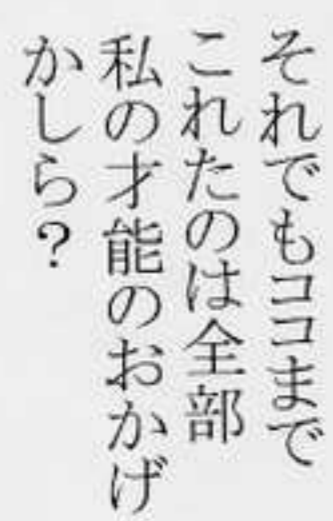 それでもココまで
これたのは全部
私の才能のおかげ
かしら？